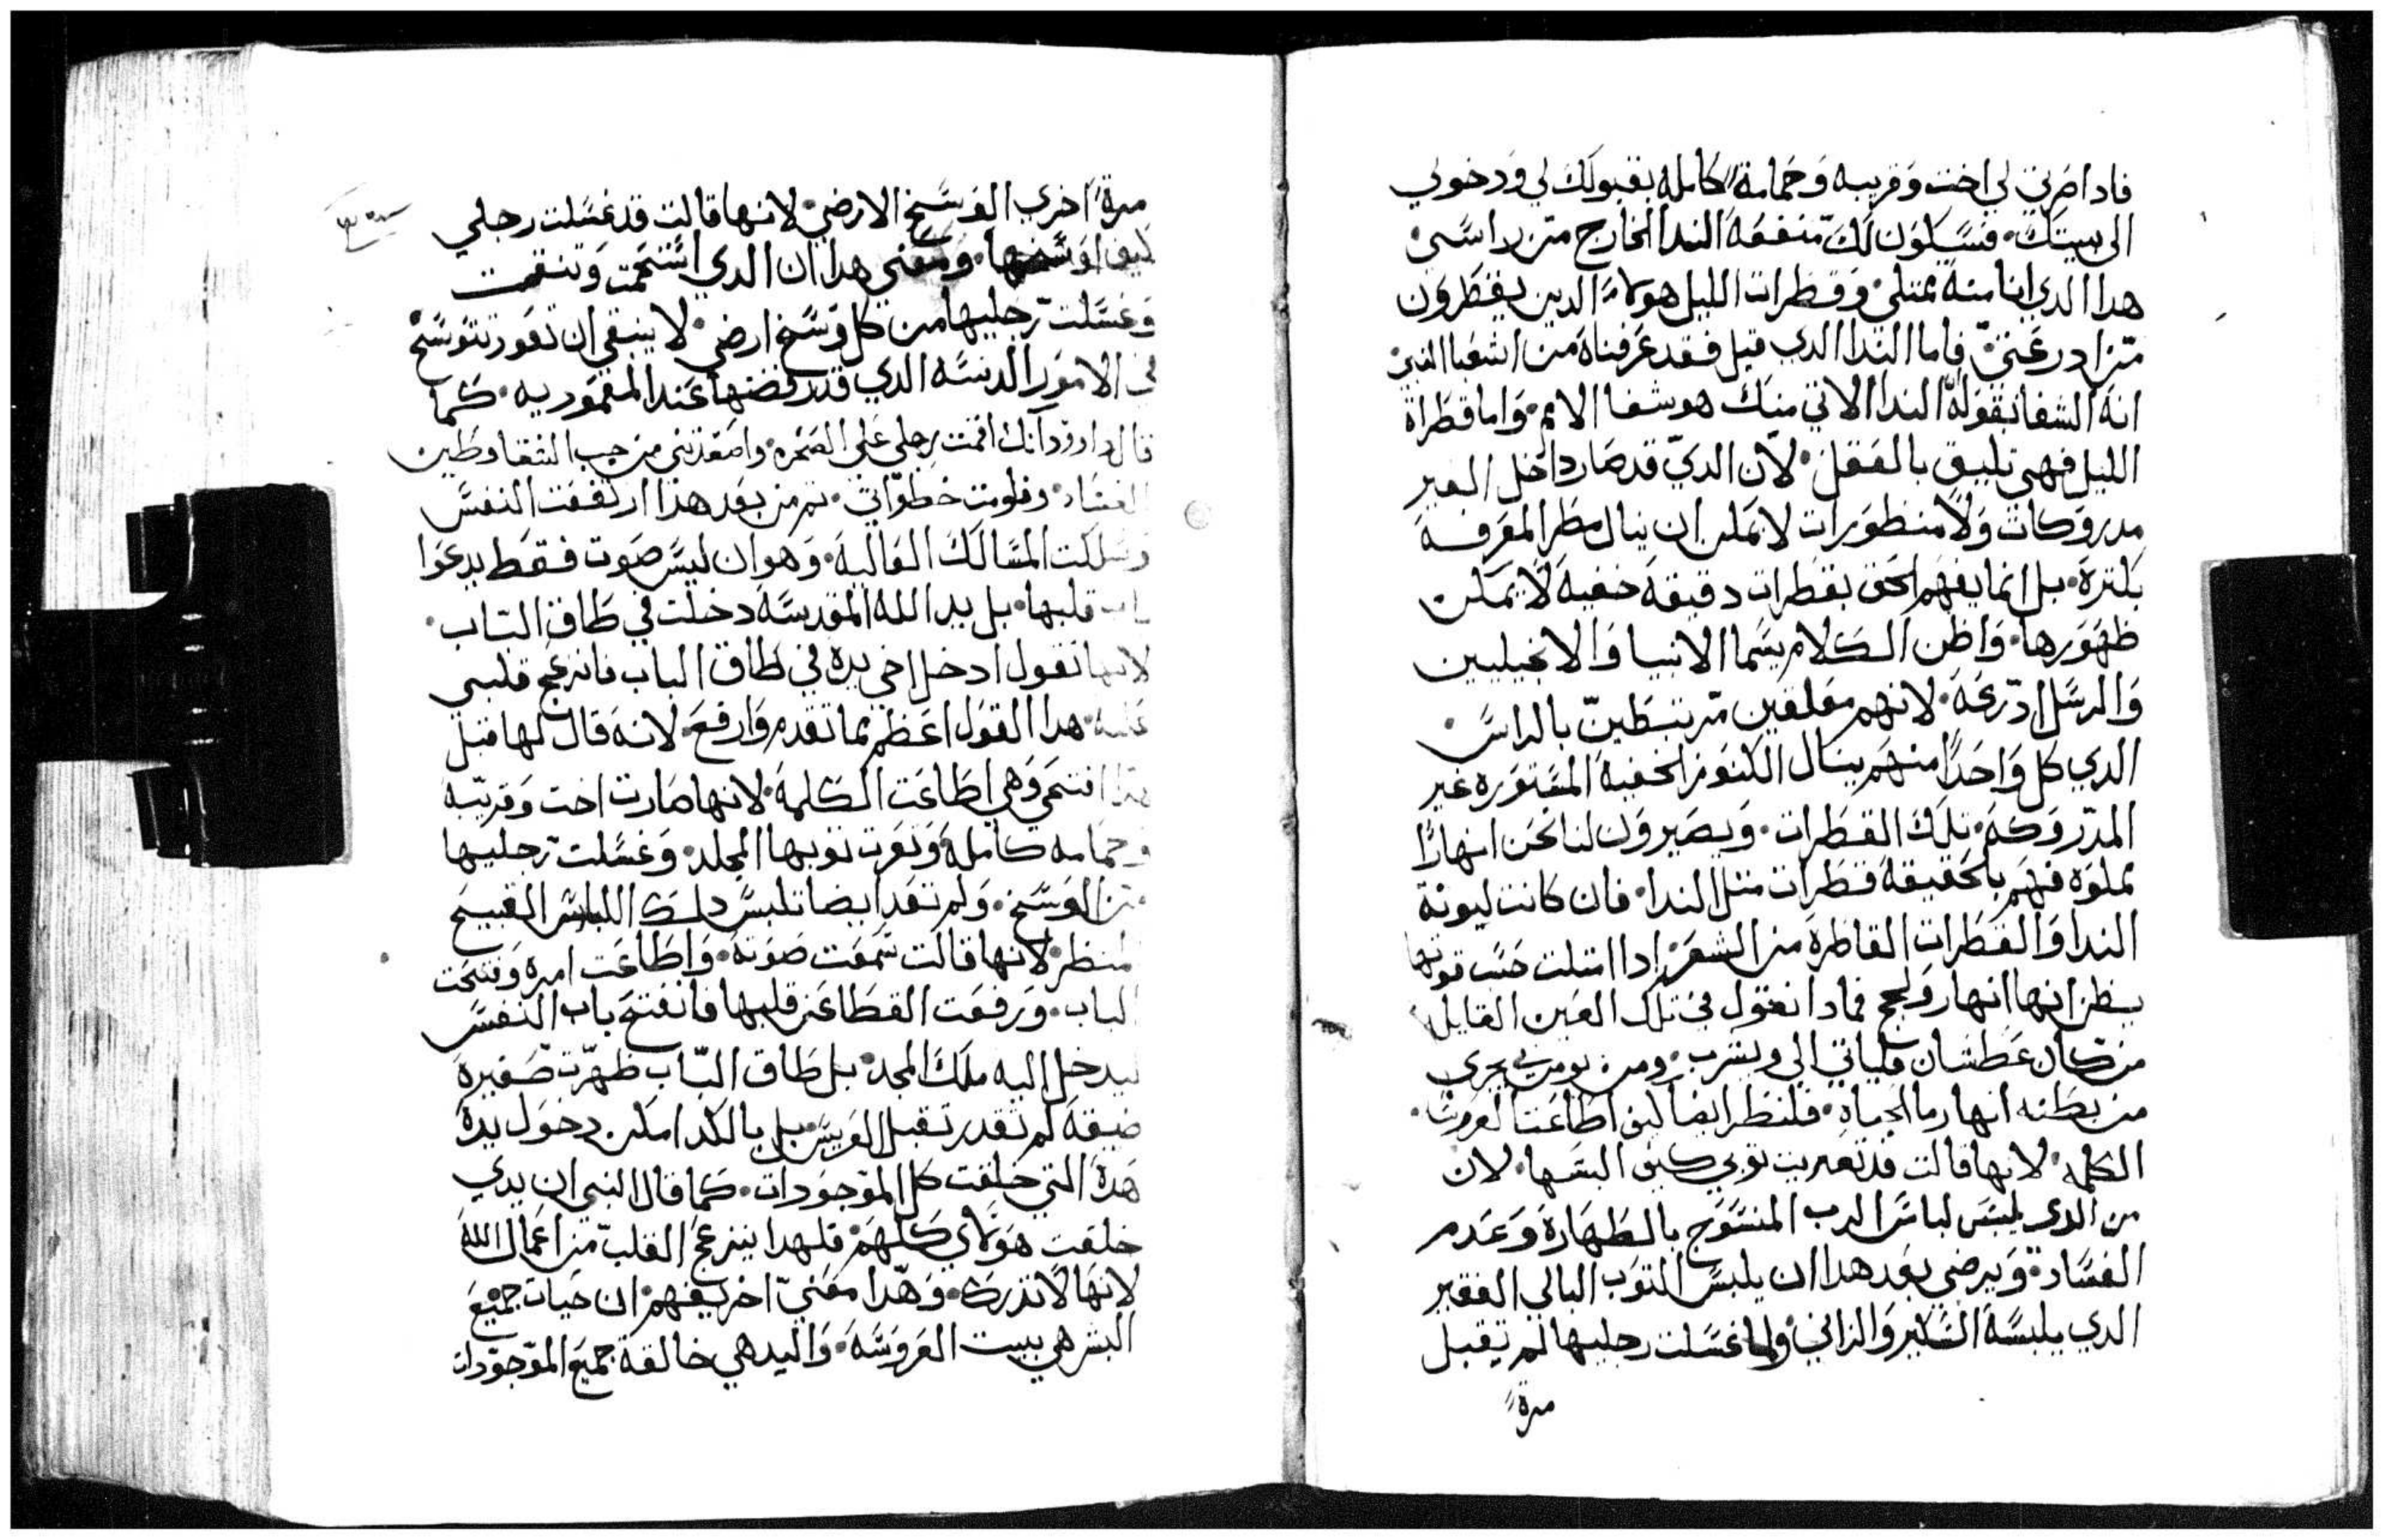 فاداصرتي لي اخت وقريبه وحمامة كامله بقبولك لي ودخولي
الى بيتك. فسيكون لك منفعة الندا الخارج من راسي
هدا الدي انا منه ممتلي. وقطرات الليل هولاء الدين يقطرون
من ادرعتي. فاما الندا الدي قبل فقد عرفناه من اشعيا النبي
انه الشفا بقوله الندا الاتي منك هو شفا الامم. واما قطراة
الليل فهي تليق بالعقل. لان الدي قد صار داخل الغير
مدروكات ولا منظورات لا يمكن ان ينال مطر المعرفة
بكترة. بل انما يفهم الحق بقطرات دقيقه خفيه لا يمكن
ظهورها. واظن الكلام يسما الانبيا والانجيليين
والرسل ادرعة. لانهم معلقين مرتبطين بالراس.
الدي كل واحدا منهم ينال الكنوز الخفية المستوره غير
المدروكة. تلك القطرات. ويصيرون لنا نحن انهارا
مملوه فهم بالحقيقة قطرات متل الندا. فان كانت ليونة
الندا والقطرات القاطرة من الشعر ادا امتلت حسب قوتها
يظن انها انهار ولجج فمادا نقول في تلك العين القايله
من كان عطشان فلياتي الي ويشرب. ومن يومن بي يجري
من بطنه انهار ما الحياة. فلننظر ايضا كيف اطاعت العروسة
الكلمه. لانها قالت قد تعريت توبي كيف البسها. لان
من الدي يلبس لباس الرب المنسوج بالطهارة وعدم
الفساد. ويرضي بعد هدا ان يلبس التوب البالي الفقير
الدي يلبسه السكير والزاني. ولما غسلت رجليها لم تقبل
مرة
مرة اخري الوسخ الارضي. لانها قالت قد غسلت رجلي
كيف اوسخها. ومعني هدا ان الدي استحمت وتنقت
وغسلت رجليها من كل وسخ ارضي. لا ينبغي ان تعود تتوسخ
في الامور الدنسه الدي قد رفضتها عند المعموديه. كما
قال داوود انك اقمت رجلي علي الصخره واصعدتني من جب الشقا وطين
الفساد. وقومت خطواتي. تم من بعد هذا ارتفعت النفس
وسلكت المسالك العاليه. وهو ان ليس صوت فقط يدعوا
باب قلبها. بل يد الله المقدسه دخلت في طاق الباب.
لانها تقول ادخل اخي يده في طاق الباب فانزعج قلبي
عليه. هدا القول اعظم مما تقدم وارفع. لانه قال لها قبل
هدا افتحي وهي اطاعت الكلمة. لانها صارت اخت وقريبه
وحمامه كامله وتعرت توبها الجلد. وغسلت رجليها
من الوسخ. ولم تعد ايضا تلبس دلك اللباس القبيح
المنظر. لانها قالت سمعت صوته. واطاعت امره وفتحت
الباب. ورفعت الغطا عن قلبها فانفتح باب النفس
ليدخل اليه ملك المجد. بل طاق الباب ظهرت صغيرة
ضيقة لم تقدر تقبل العريس. بل بالكد امكن دخول يده
هده التي خلقت كل الموجودات. كما قال النبي ان يدي
خلقت هولاي كلهم. فلهدا ينزعج القلب من اعمال الله
لانها لا تدرك. وهدا معني اخر يفهم. ان حيات جميع
البشر هي بيت العروسه. واليد هي خالقة جميع الموجودات